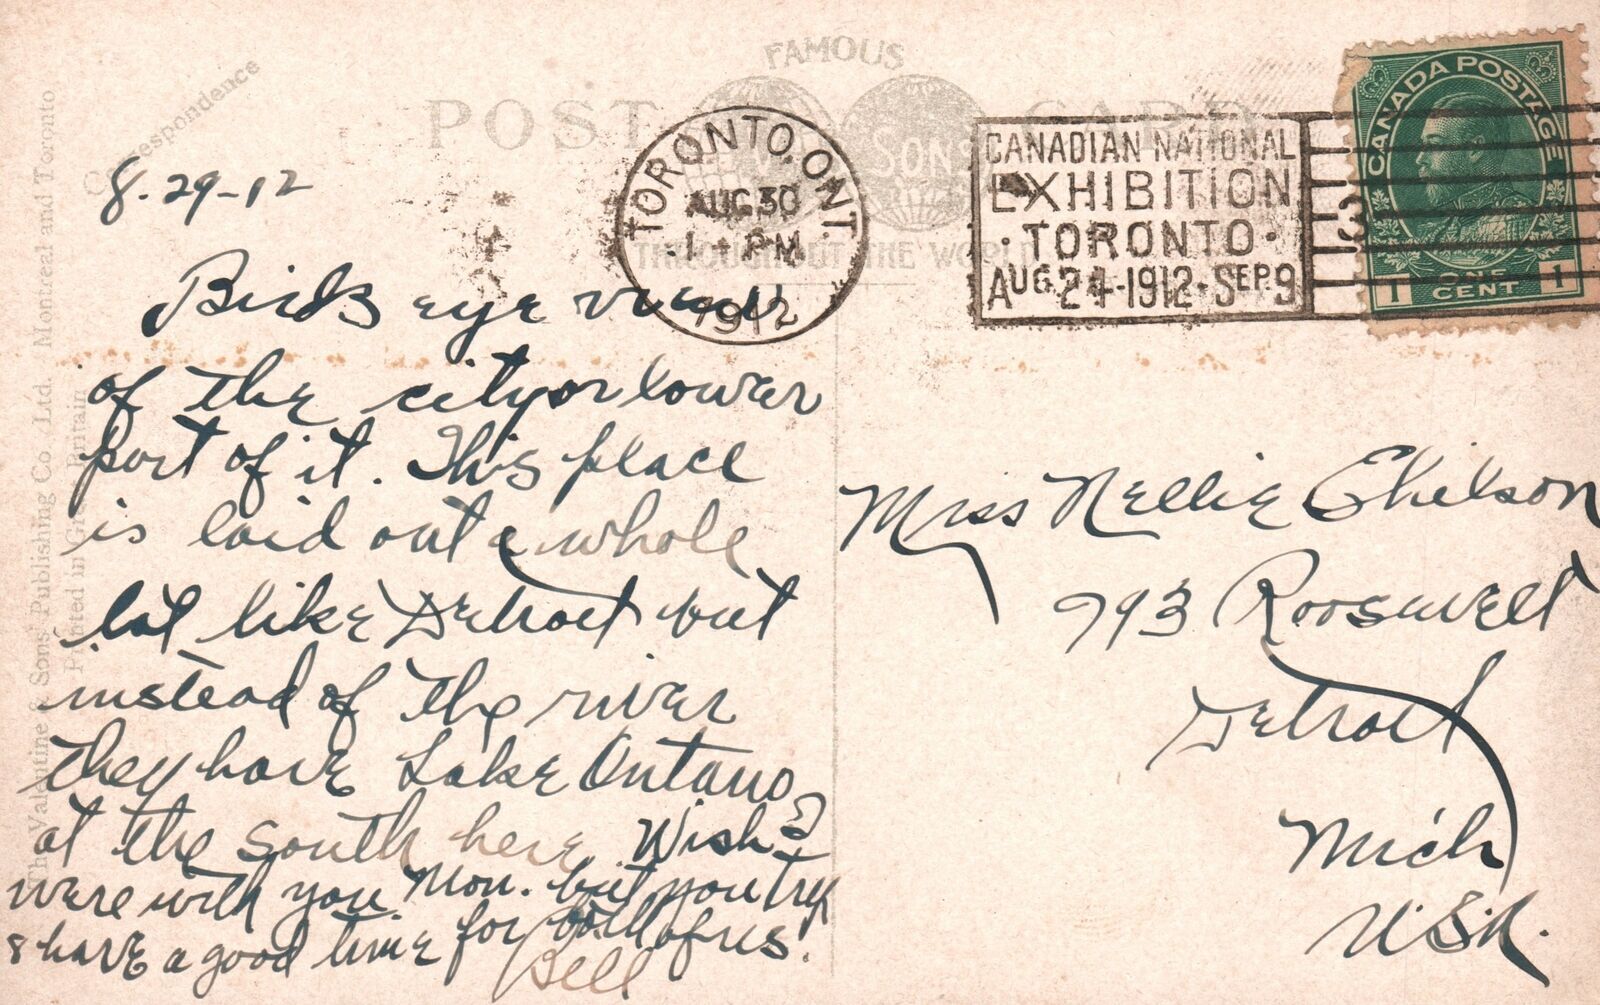 FAMOUS
POST CARD
THROUGHOUT THE WORLD
SONS
Correspondence
The Valentine & Sons' Publishing Co., Ltd. Montreal and Toronto
Printed in Great Britain
TORONTO, ONT.
AUG 30
1 - PM
1912
CANADIAN NATIONAL
EXHIBITION
·TORONTO·
AUG. 24-1912-SEP. 9
3
CANADA POSTAGE
1 ONE CENT 1
8-29-12
Birds eye view
of the city or lower
part of it. This place
is laid out a whole
lot like Detroit but
instead of the river
they have Lake Ontario
at the south here. Wish I
were with you Mon. but you try
& have a good time for both of us.
Bell
Miss Nellie
793 Roosevelt
Detroit
Mich
U.S.A.